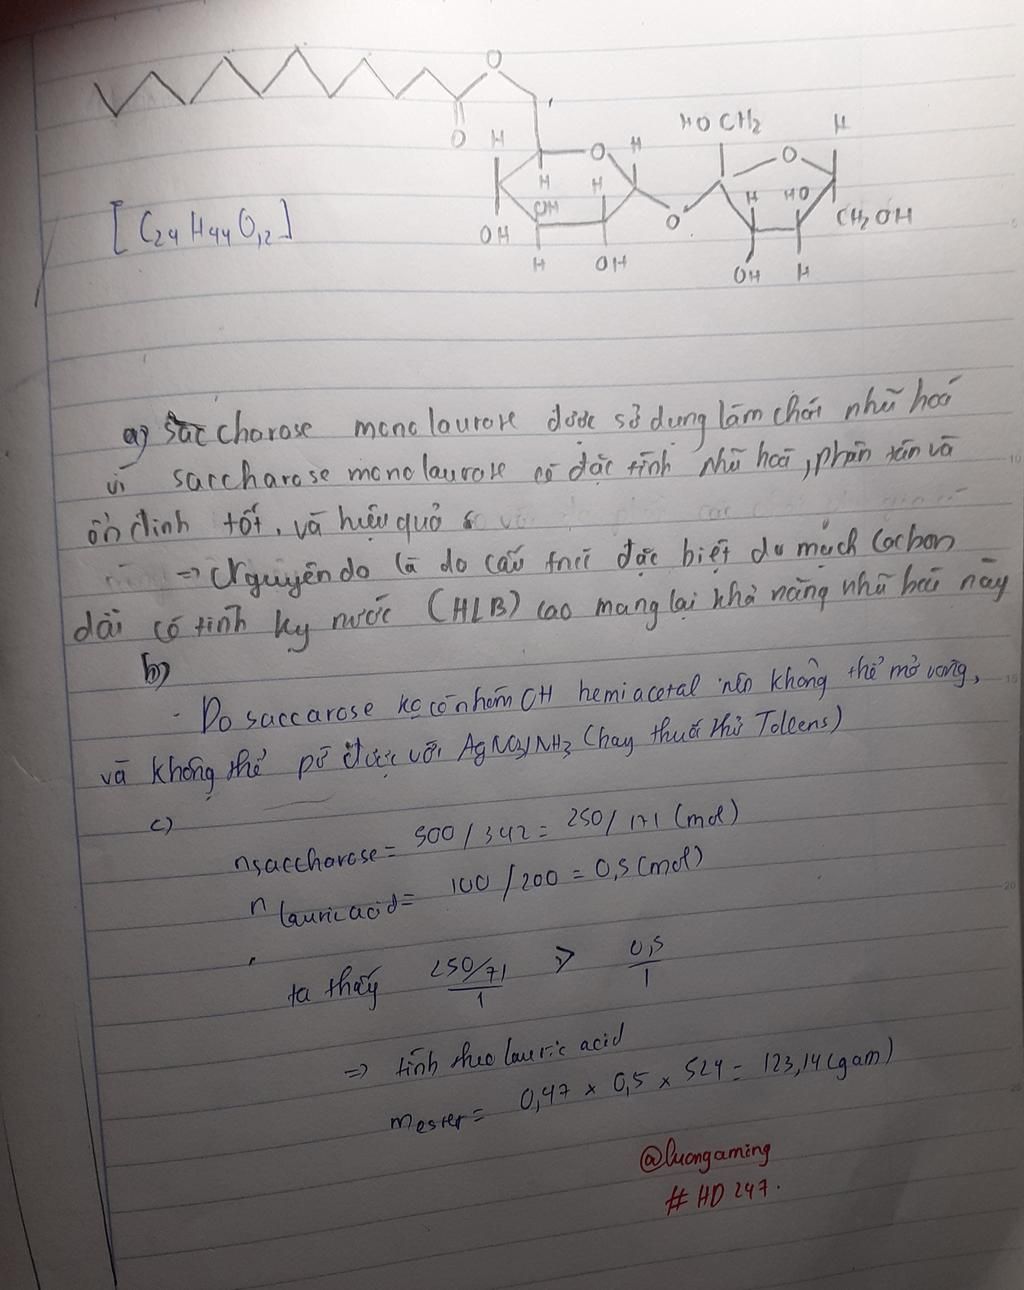 O
O
HO CH2
H
H
O
H
O
H
H
H
HO
OH
O
CH2 OH
[C24 H44 O12]
OH
H
OH
OH
H
a) Saccharose monolaurate được sử dụng làm chất nhũ hoá
vì saccharose monolaurate có đặc tính nhũ hoá, phân tán và
ổn định tốt, và hiệu quả
=> Nguyên do là do cấu trúc đặc biệt do mạch Cacbon
dài có tính kỵ nước (HLB) cao mang lại khả năng nhũ hoá này
b)
- Do saccarose ko có nhóm OH hemiacetal nên không thể mở vòng,
và không thể pứ được với AgNO3/NH3 (hay thuốc thử Tollens)
c)
nsaccharose = 500 / 342 = 250 / 171 (mol)
n lauric acid = 100 / 200 = 0,5 (mol)
ta thấy 250/71 / 1 > 0,5 / 1
=> tính theo lauric acid
mester = 0,47 x 0,5 x 524 = 123,14 (gam)
@luongaming
# HD 247.